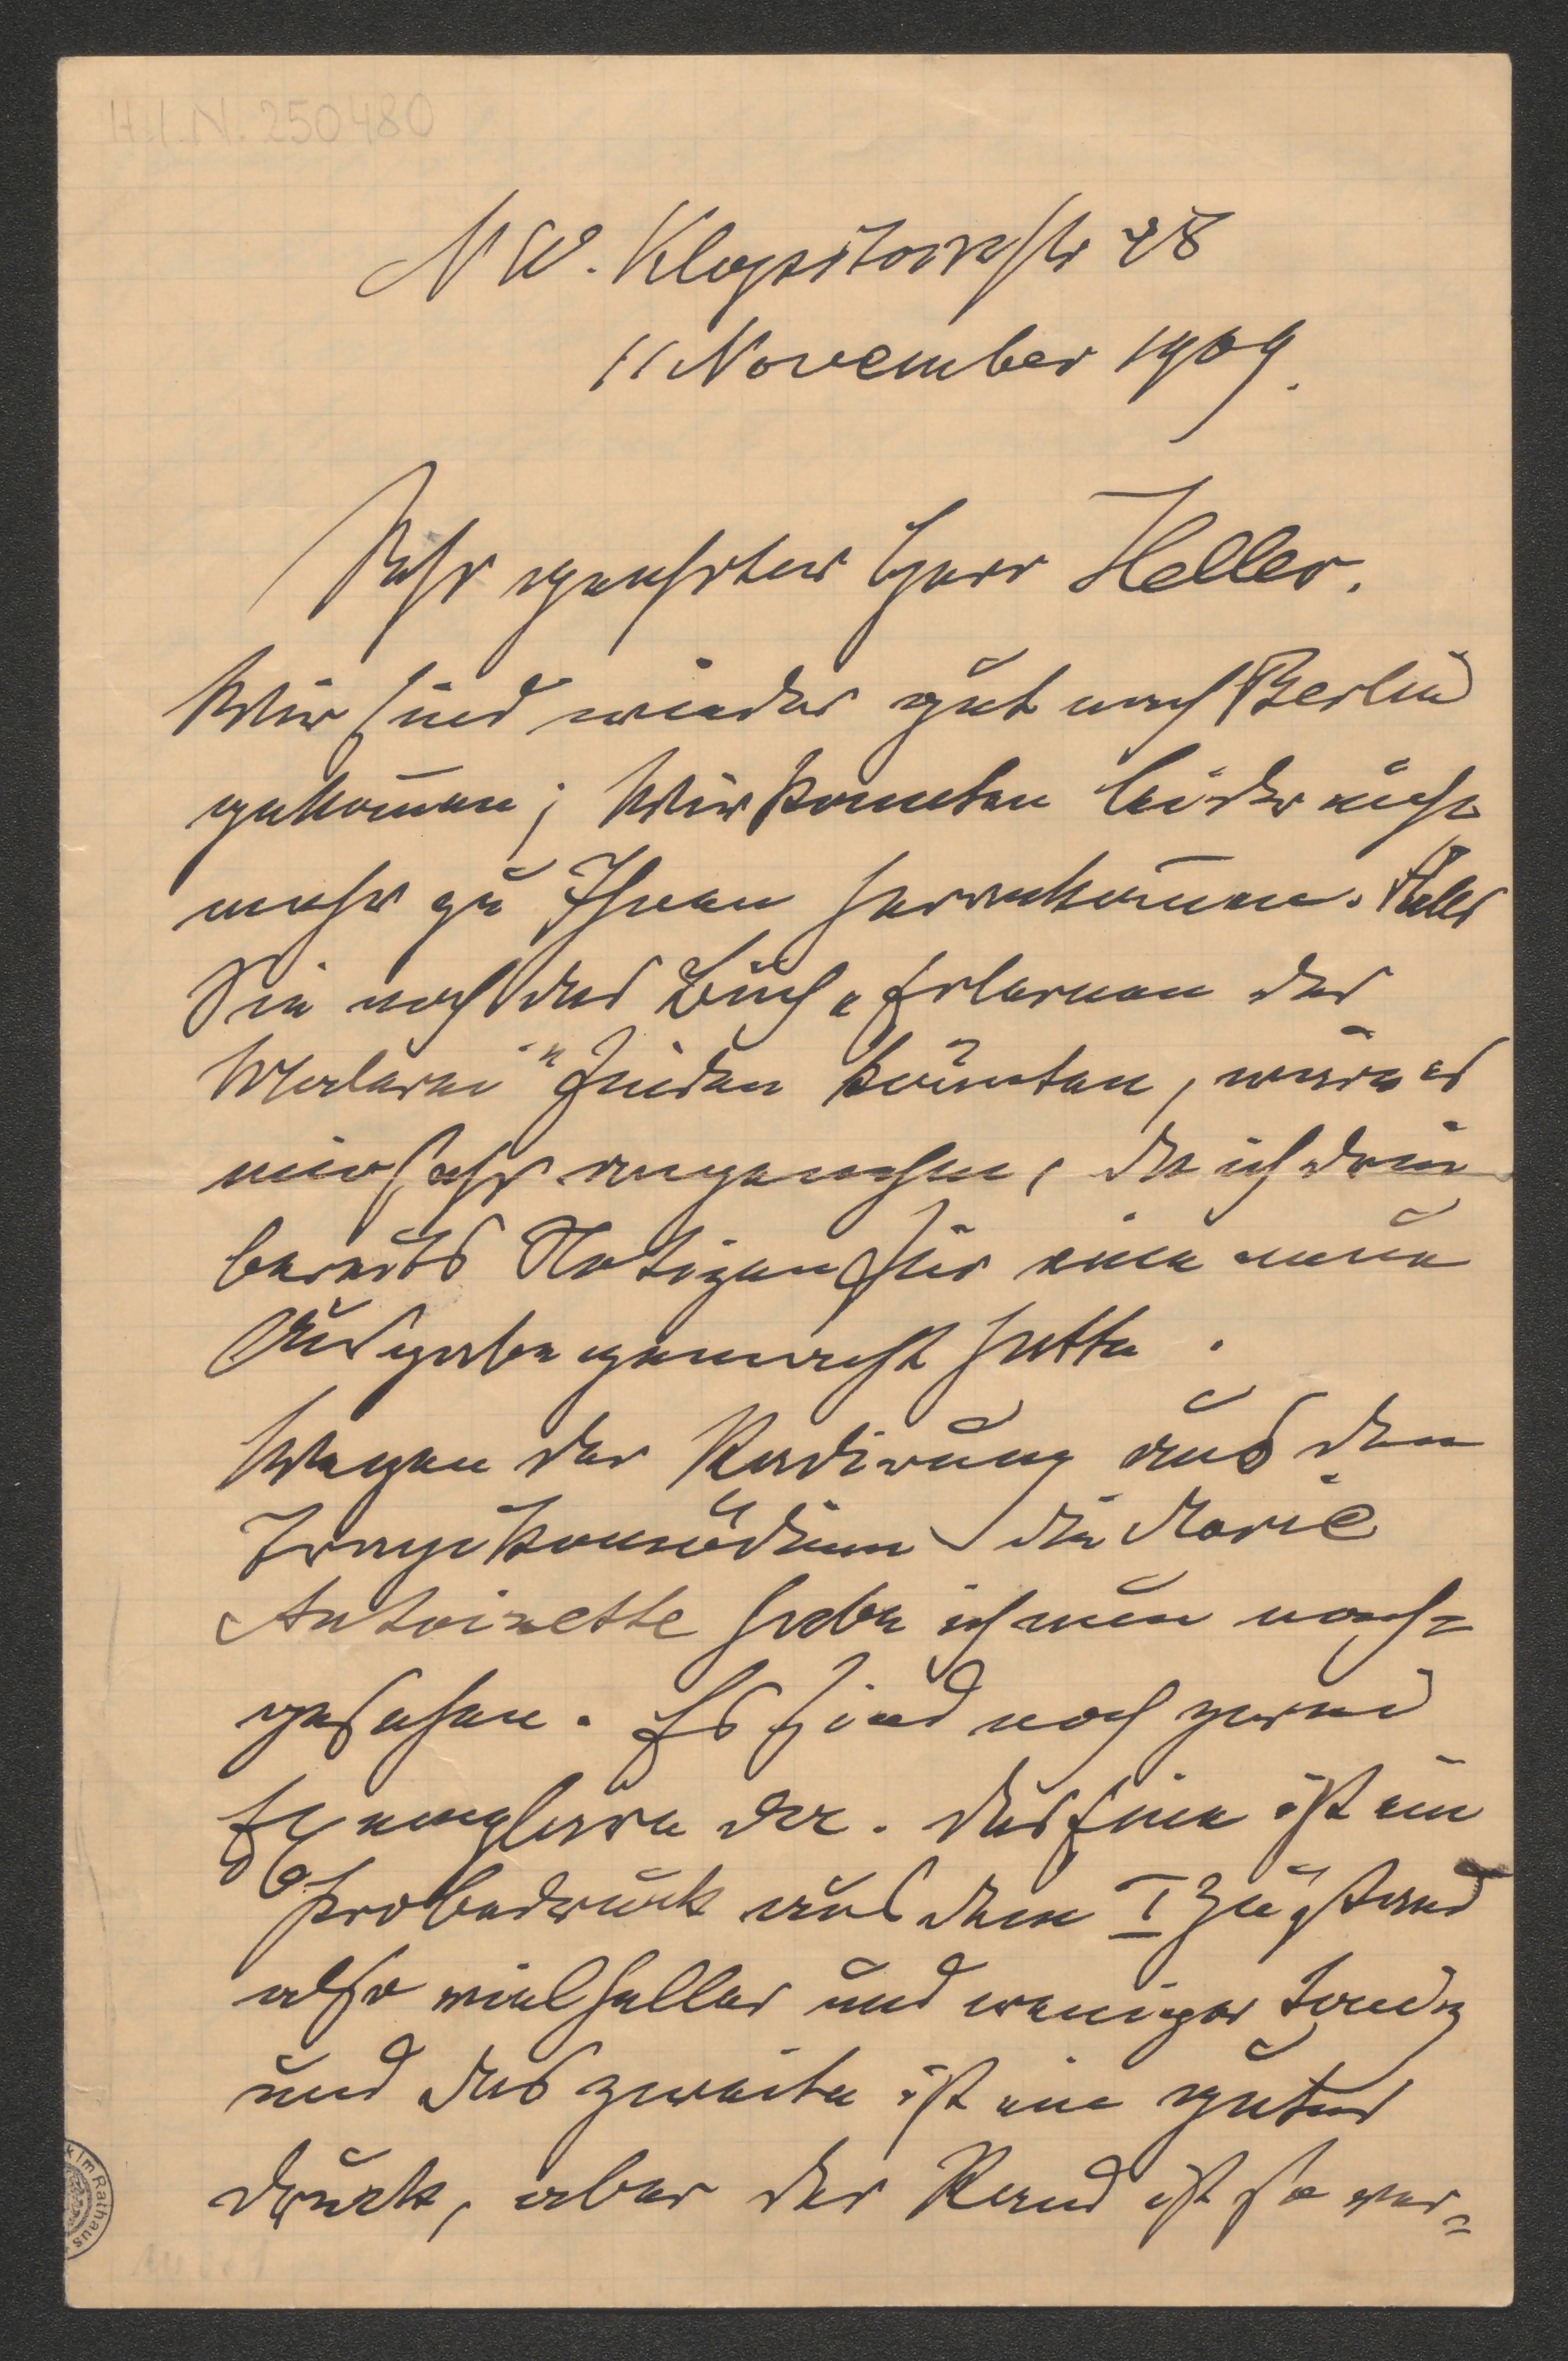 H.I.N. 250480
NW. Klopstockstr 48
11 November 1909.
Sehr geehrter Herr Heller.
Wir sind wieder gut nach Berlin
gekom̄en; Wir konnten leider nicht
mehr zu Ihnen herankom̄en. Falls
Sie noch das Buch „Erlernen der
Malerei" finden könnten, wäre es
mir sehr angenehm, da ich drin
bereits Notizen für eine neue
Ausgabe gemacht hatte.
Wegen der Radirung aus den
Tragikomödien die Marie
Antoinette habe ich nun nach=
gesehen. Es sind noch zwei
Exemplare da. Das Eine ist ein
Probedruck aus dem I Zustand
also viel heller und weniger
und das zweite ist ein guter
Druck, aber der Rand ist so ver=
k im Rathaus